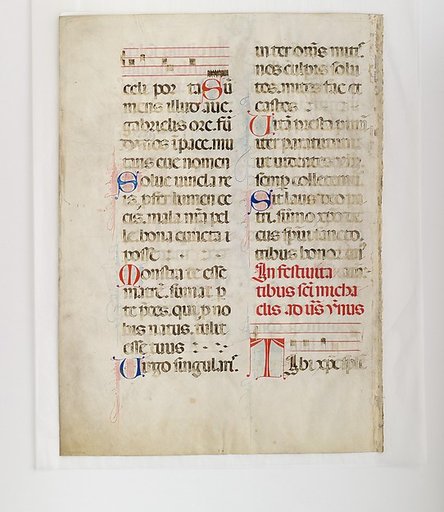 celi por ta Sū
mens illud aue.
gabrielis ore. fū
da nos ī pace. mu
tans eue nomen
Solue uincla re
is, pfer lumen ce
cis. mala nrā pel
le bona cuncta i
posse
Monstra te esse
matrē. sumat p
te preces. qui p no
bis natus. tulit
esse tuus
Uirgo singularꝭ.
inter omēs mitꝭ.
nos culpis solu
tos. mites fac et
castos
Uitā presta purā
iter para tutum.
ut uidentes
semp colletemꝰ.
Sit laus deo pa
tri. sūmo xpo de
cus spiritui sancto.
tribus honor
In festiuita
tibus scī micha
elis. ad uꝭs ymnus
Tibi xpe sple